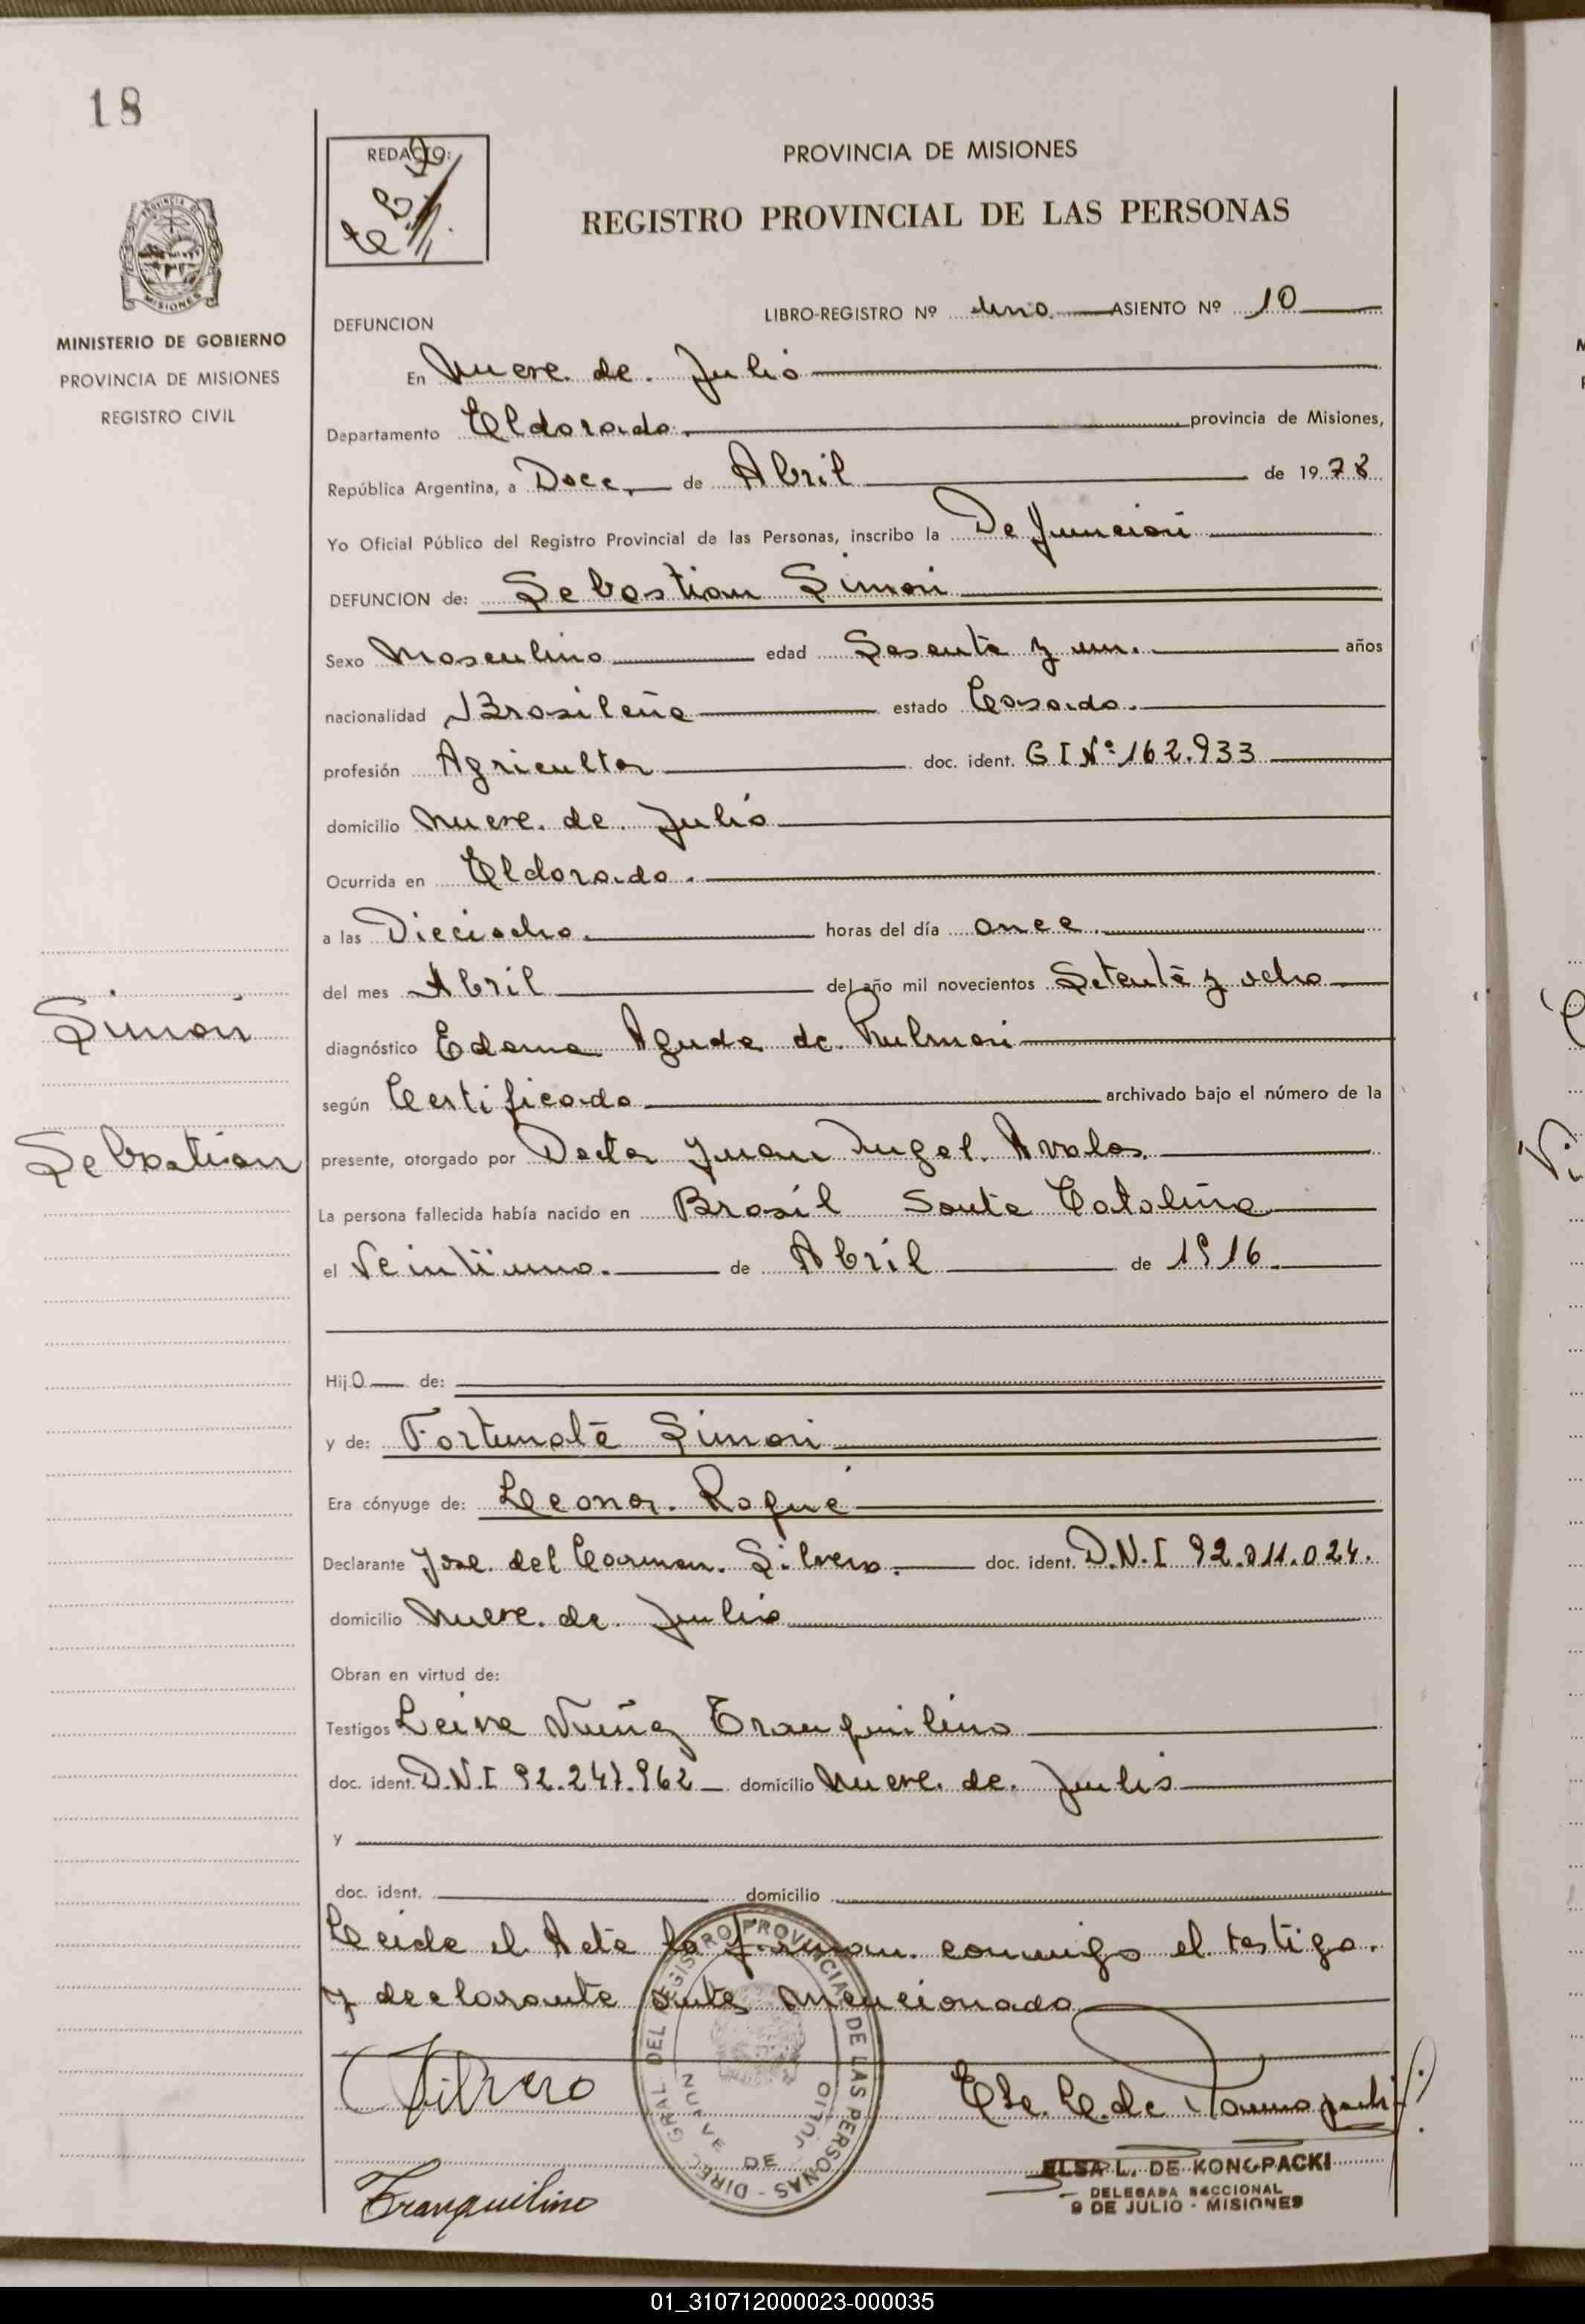 18
REDACTO:
PROVINCIA DE MISIONES
REGISTRO PROVINCIAL DE LAS PERSONAS
PROVINCIA DE
MISIONES
MINISTERIO DE GOBIERNO
PROVINCIA DE MISIONES
REGISTRO CIVIL
LIBRO-REGISTRO Nº uno. ASIENTO Nº 10
DEFUNCION
En Nueve de Julio
Departamento Eldorado. provincia de Misiones,
República Argentina, a Doce de Abril de 1978
Yo Oficial Público del Registro Provincial de las Personas, inscribo la Defunción
DEFUNCION de: Sebastian Simon
Sexo Masculino edad Sesenta y un. años
nacionalidad Brasileña estado Casado.
profesión Agricultor doc. ident. C I Nº 162.933
domicilio Nueve de Julio
Ocurrida en Eldorado.
a las Dieciocho. horas del día once.
del mes Abril del año mil novecientos Setenta y ocho
diagnóstico Edema Agudo de Pulmon
según Certificado archivado bajo el número de la
presente, otorgado por Doctor Juan Angel Avalos.
La persona fallecida había nacido en Brasil Santa Catalina
el Veintiuno. de Abril de 1916.
Hijo de:
y de: Fortunata Simon
Era cónyuge de: Leonor Roque
Declarante Jose del Carmen Silvero. doc. ident. D.N.I 92.011.024.
domicilio Nueve de Julio
Obran en virtud de:
Testigos Leiva Nuñez Tranquilino
doc. ident. D.N.I 92.247.962 domicilio Nueve de Julio
y
doc. ident. domicilio
Leida el Acta la firman conmigo el testigo.
y declarante antes mencionado
Simon
Sebastian
DIREC. GRAL. DEL REGISTRO PROVINCIAL DE LAS PERSONAS -
NUEVE DE JULIO
Silvero
Tranquilino
ELSA L. DE KONOPACKI
DELEGADA SECCIONAL
9 DE JULIO - MISIONES
01_310712000023-000035